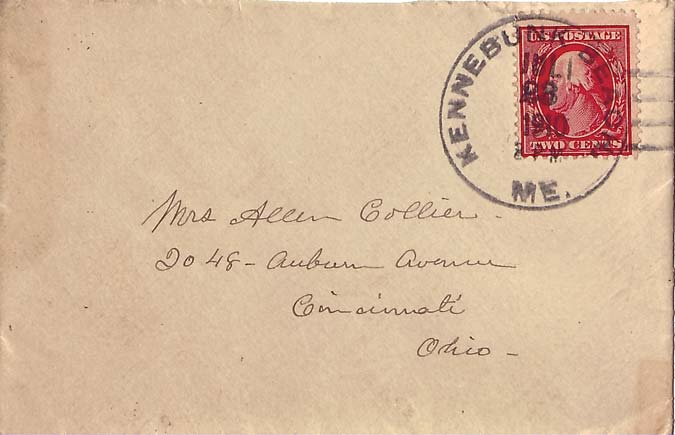 KENNEBUNK BEACH
ME.
1910
U.S. POSTAGE
TWO CENTS
Mrs Allen Collier -
2048 - Auburn Avenue
Cincinnati
Ohio -